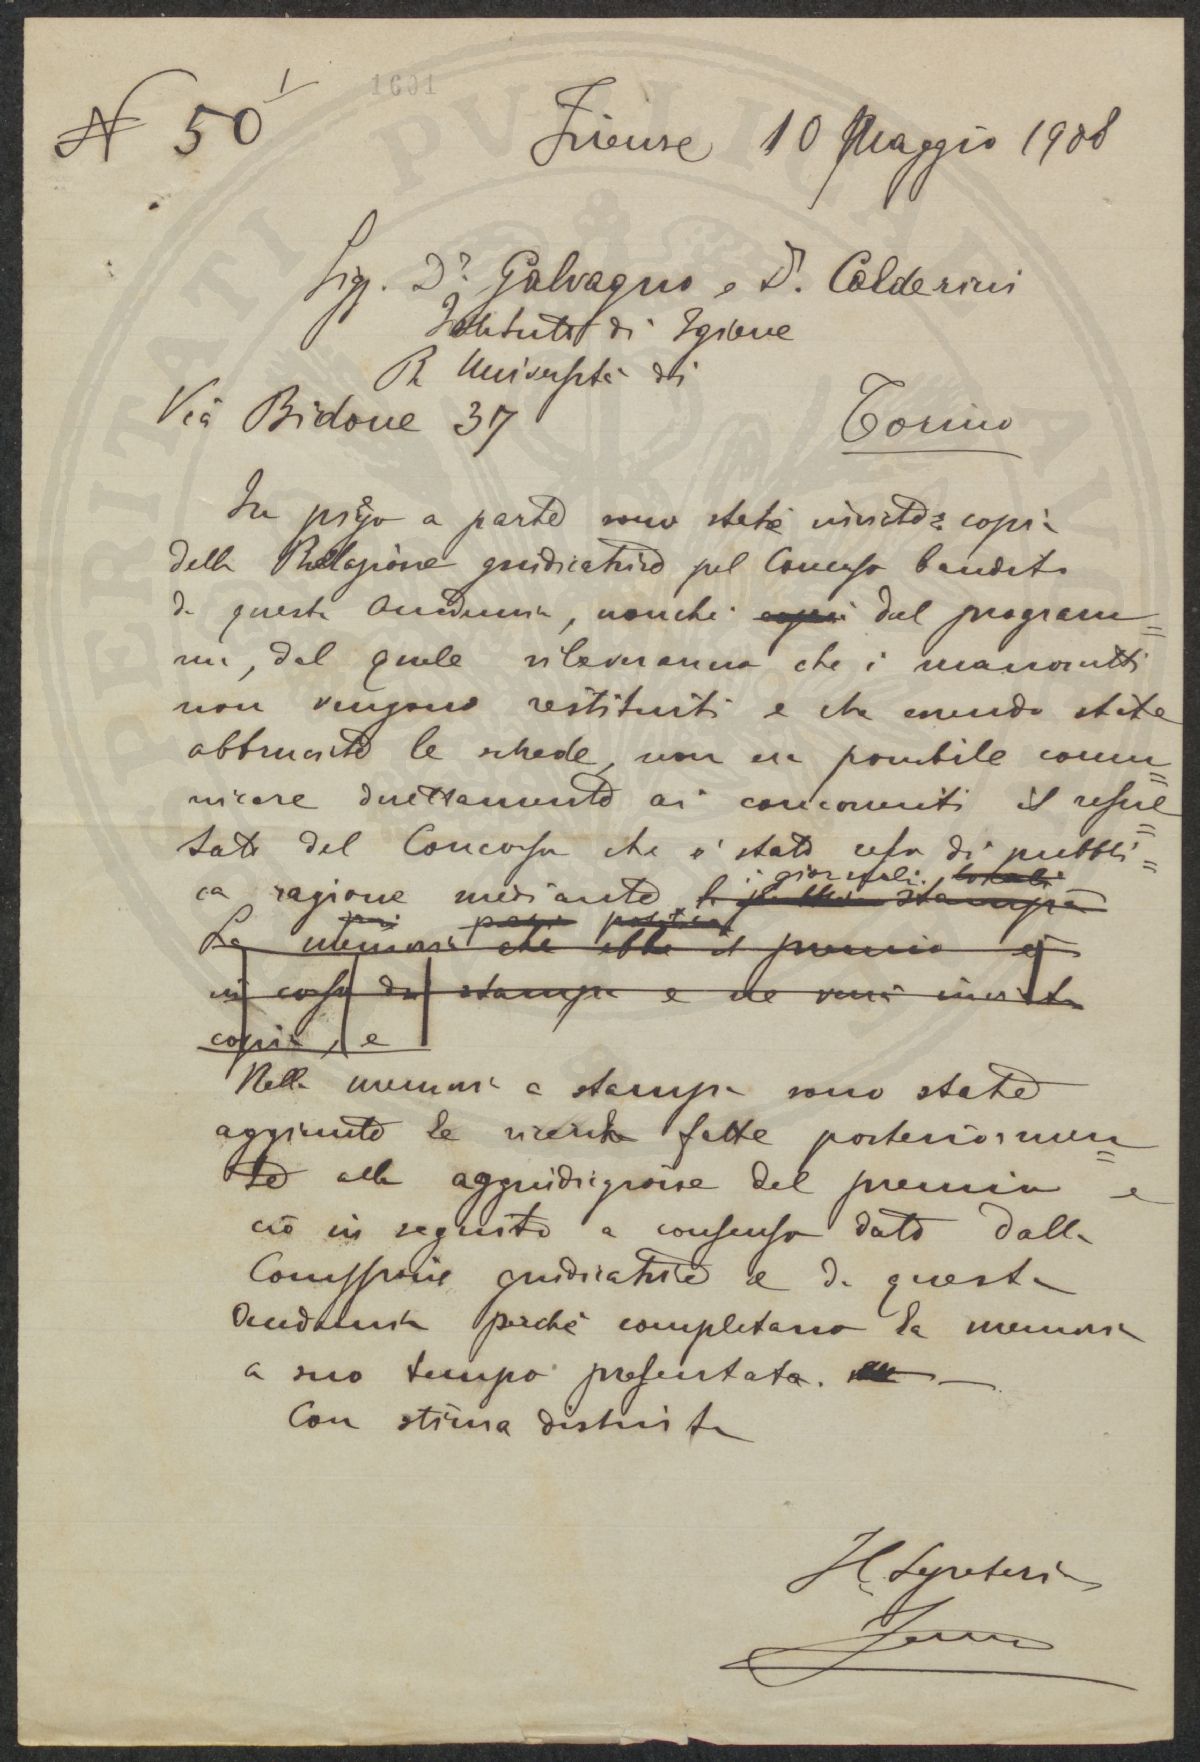 N 50 1
1601
Firenze 10 Maggio 1908
Sigg. Dr. Galvagno e Dr. Calderini
Istituto di Igiene
R Università di
Via Bidone 37 Torino
In piego a parte sono state inviate copia
della Relazione giudicatrice pel Concorso bandito
da questa Accademia, nonchè copia dal program=
ma, dal quale rileveranno che i manoscritti
non vengono restituiti e che essendo state
abbruciate le schede, non era possibile comu=
nicare direttamente ai concorrenti il resul=
tato del Concorso che è stato reso di pubbli=
i giornali locali
ca ragione mediante la stampa
La memoria che ebbe il premio è
in corso di stampa e ne verrà inviata
copia, e
Nella memoria a stampa sono state
aggiunte le ricerche fatte posteriormen=
te alla aggiudicazione del premio e
ciò in seguito a consenso dato dalla
Commissione giudicatrice e da questa
Accademia perchè completano la memoria
a suo tempo presentata.
Con stima distinta
Il Segretario